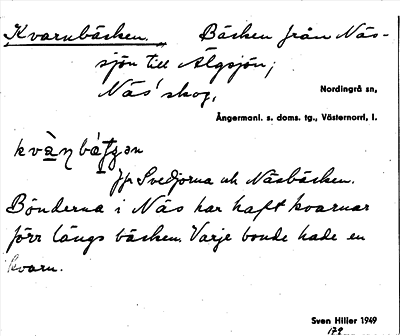 "Kvarnbäcken." Bäcken från Näs-
sjön till Älgsjön,
Näs' skog,
Nordingrå sn,
Ångermanl. s. doms. tg., Västernorrl. l.
Jfr Svedjorna och Näsbäcken.
Bönderna i Näs har haft kvarnar
förr längs bäcken. Varje bonde hade en
kvarn.
Sven Hiller 1949
179